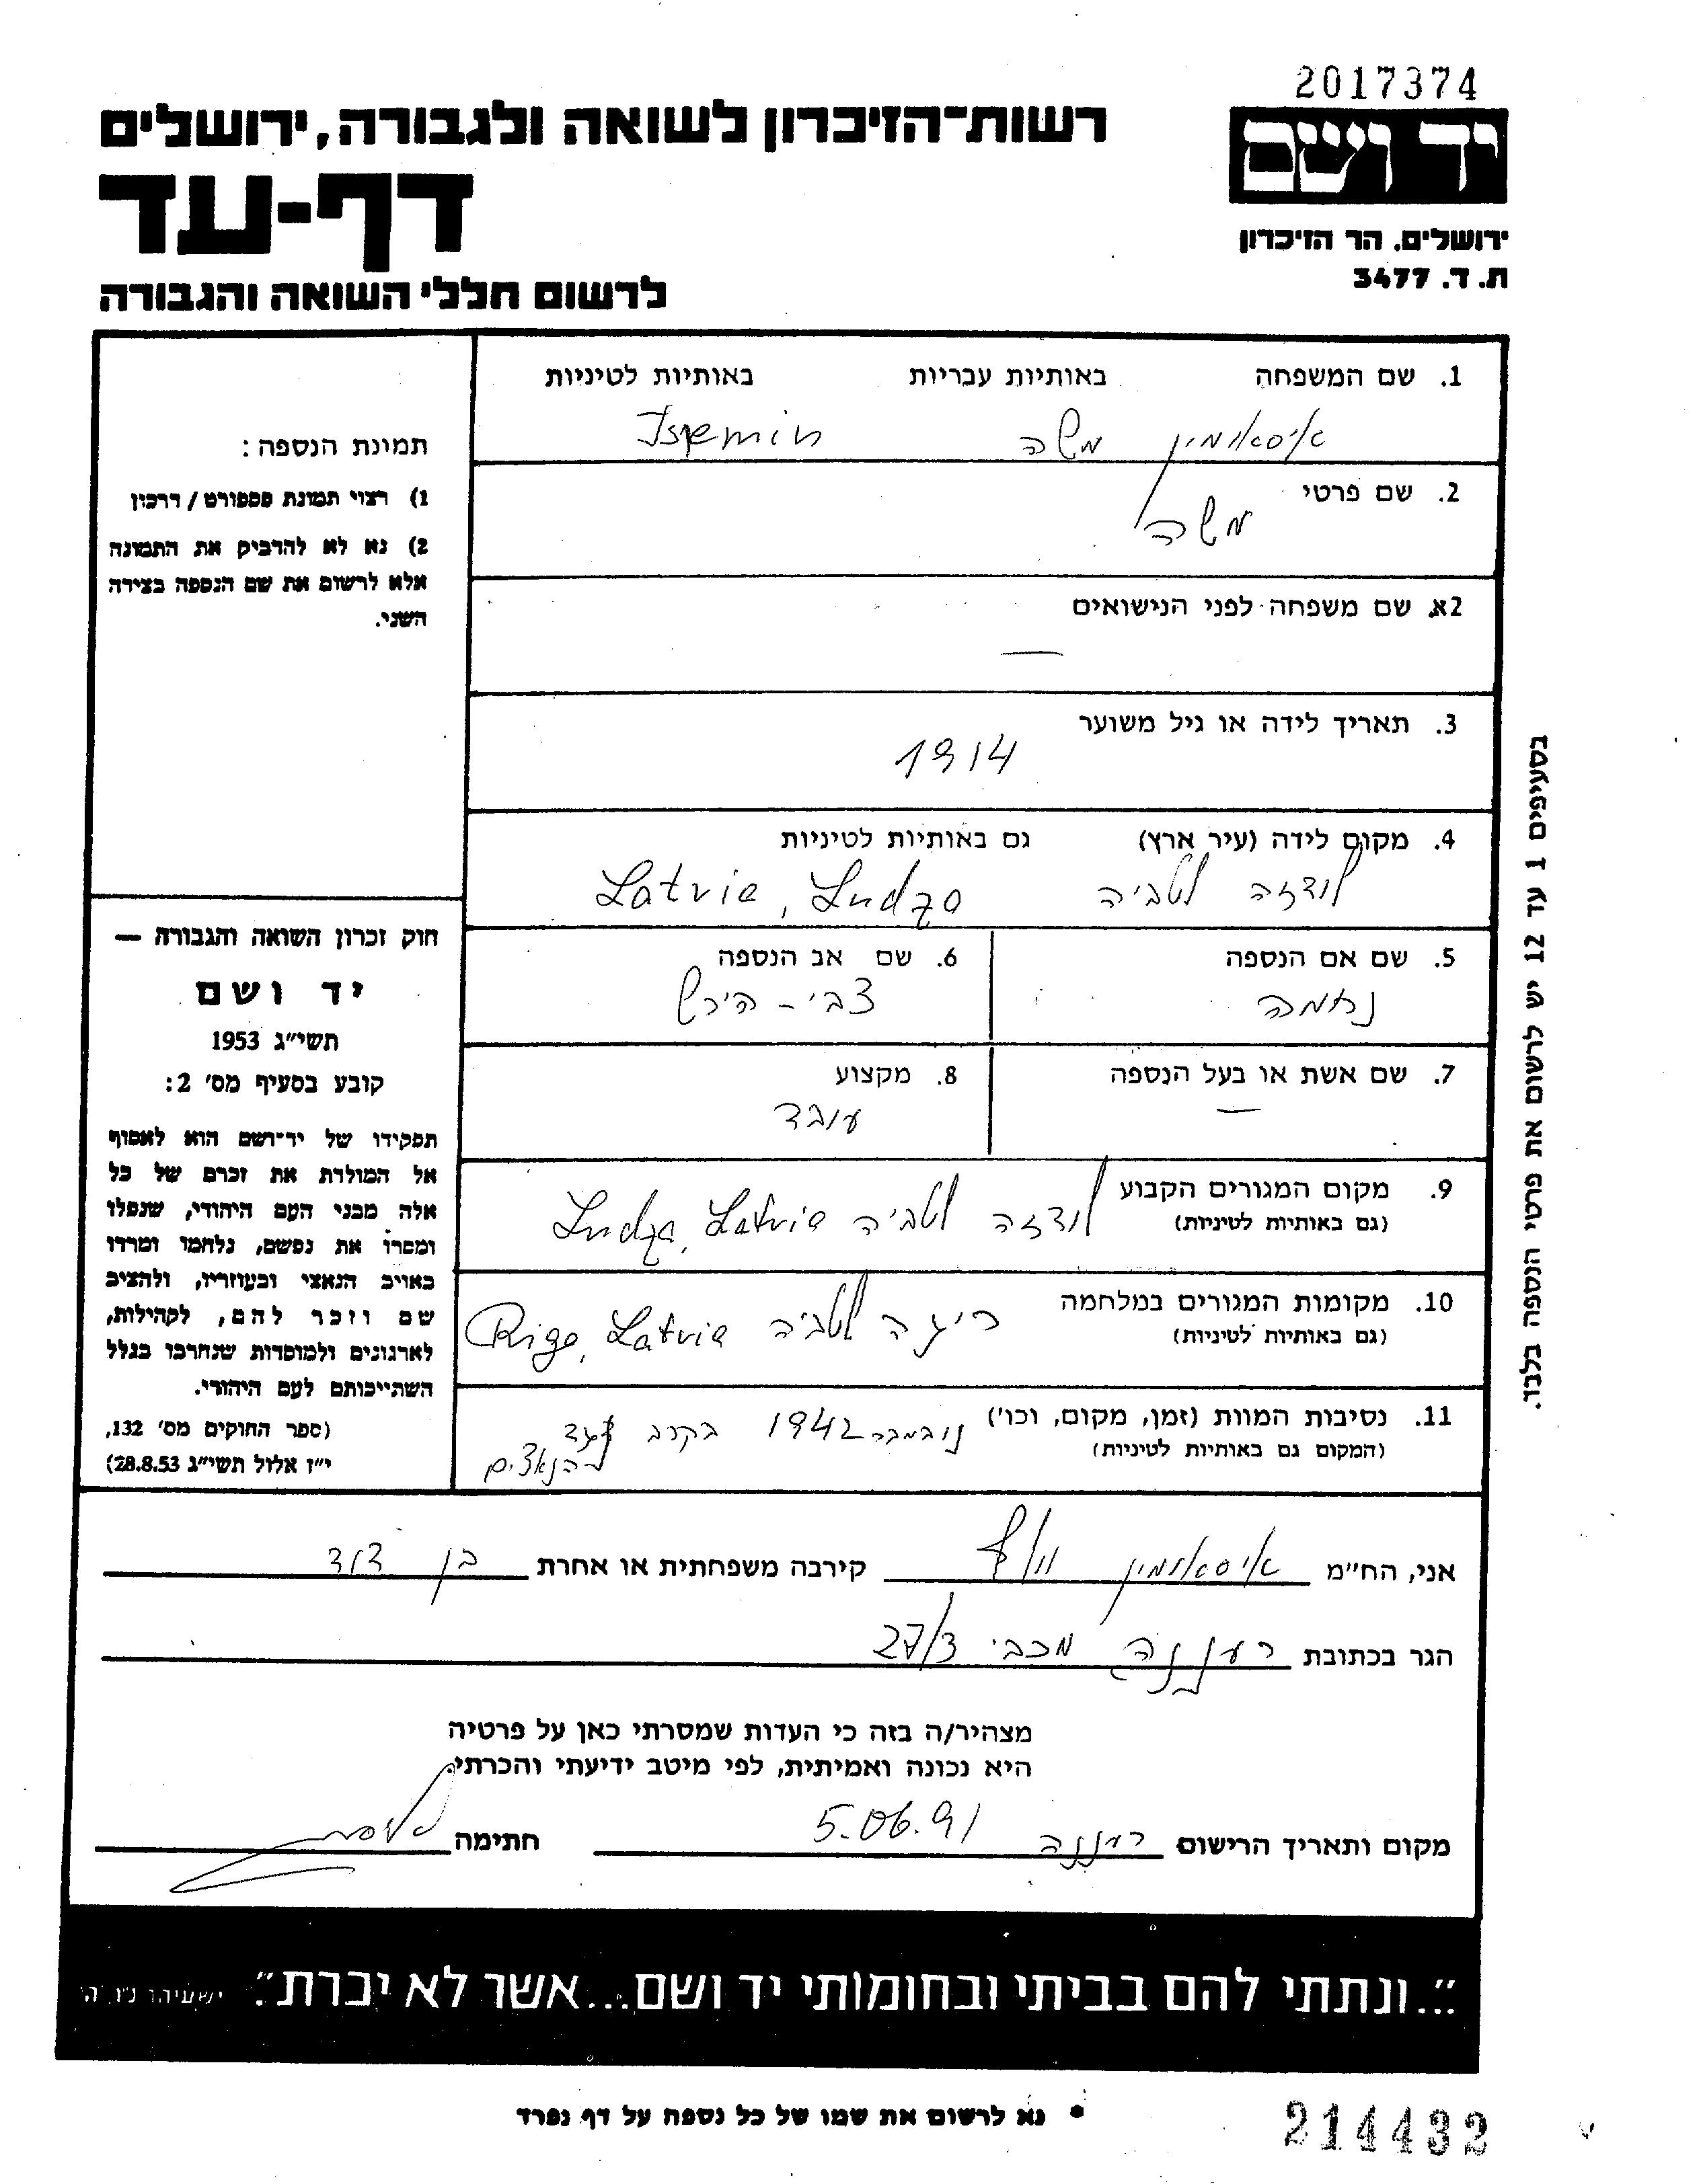 2017374
יד ושם
ירושלים. הר הזיכרון
ת. ד. 3477
רשות־הזיכרון לשואה ולגבורה, ירושלים
דף-עד
לרשום חללי השואה והגבורה
1. שם המשפחה באותיות עבריות באותיות לטיניות
איסאומין משה Isemin
2. שם פרטי
משה
2א. שם משפחה לפני הנישואים
—
3. תאריך לידה או גיל משוער
1914
4. מקום לידה (עיר ארץ) גם באותיות לטיניות
לודזה לטביה Latvia, Ludza
5. שם אם הנספה 6. שם אב הנספה
נחמה צבי - הירש
7. שם אשת או בעל הנספה 8. מקצוע
— עובד
9. מקום המגורים הקבוע
(גם באותיות לטיניות)
לודזה לטביה Ludza, Latvia
10. מקומות המגורים במלחמה
(גם באותיות לטיניות)
ריגה לטביה Riga, Latvia
11. נסיבות המוות (זמן, מקום, וכו')
(המקום גם באותיות לטיניות)
נובמבר 1942 בקרב נגד
הנאצים
תמונת הנספה:
1) רצוי תמונת פספורט / דרכון
2) נא לא להדביק את התמונה
אלא לרשום את שם הנספה בצידה
השני.
חוק זכרון השואה והגבורה —
יד ושם
תשי"ג 1953
קובע בסעיף מס' 2:
תפקידו של יד־ושם הוא לאסוף
אל המולדת את זכרם של כל
אלה מבני העם היהודי, שנפלו
ומסרו את נפשם, נלחמו ומרדו
באויב הנאצי ובעוזריו, ולהציב
שם וזכר להם, לקהילות,
לארגונים ולמוסדות שנחרבו בגלל
השתייכותם לעם היהודי.
(ספר החוקים מס' 132,
י"ז אלול תשי"ג 28.8.53)
בסעיפים 1 עד 12 יש לרשום את פרטי הנספה בלבד.
אני, הח"מ איסאומין וולף קירבה משפחתית או אחרת בן דוד
הגר בכתובת רעננה מכבי 27/3
מצהיר/ה בזה כי העדות שמסרתי כאן על פרטיה
היא נכונה ואמיתית, לפי מיטב ידיעתי והכרתי.
מקום ותאריך הרישום רעננה 5.06.91 חתימה
"...ונתתי להם בביתי ובחומותי יד ושם...אשר לא יכרת". ישעיהו נ"ו, ה'
* נא לרשום את שמו של כל נספה על דף נפרד
214432